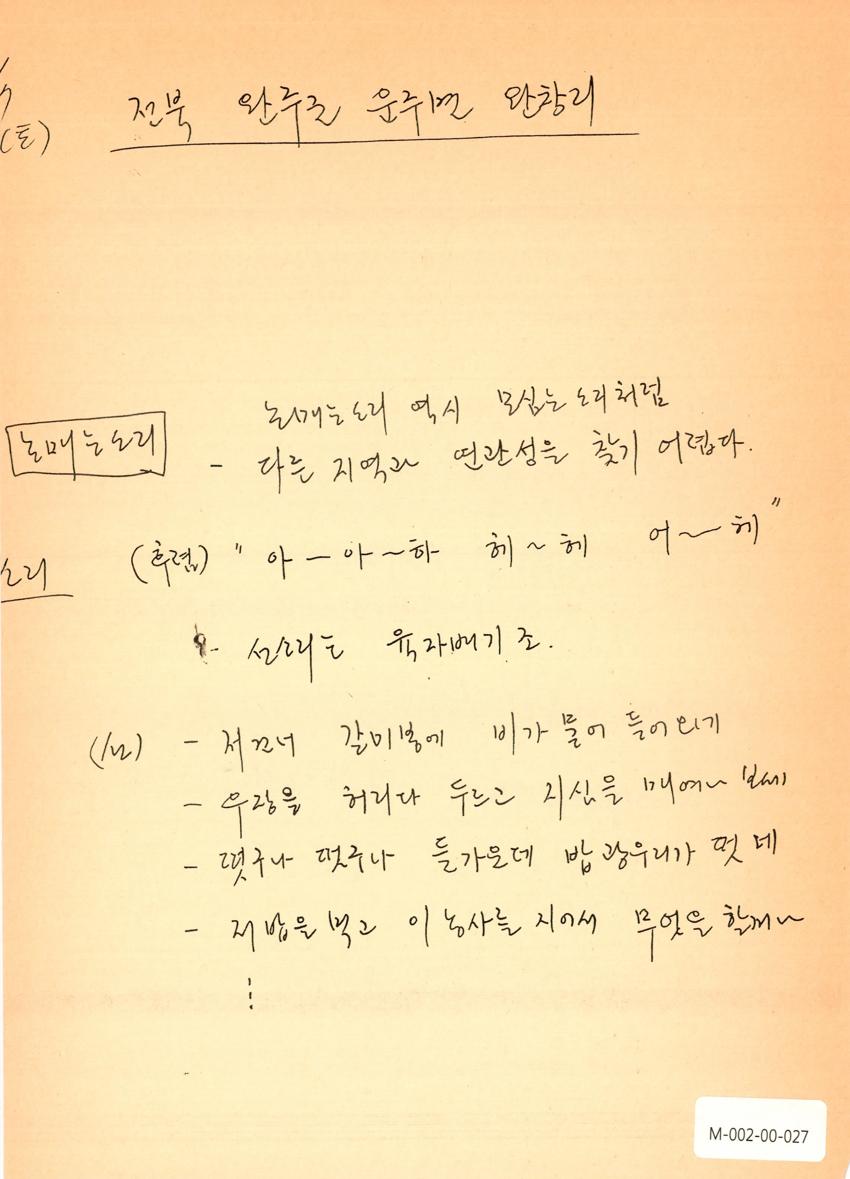 (토)
전북 완주군 운주면 완창리
논매는소리 역시 모심는소리처럼
논매는소리
- 다른 지역과 연관성을 찾기 어렵다.
소리 (후렴) " 아 — 아 ~ 하 헤 ~ 헤 어 ~ 헤 "
- 선소리는 육자배기 조.
- 저건너 갈미봉에 비가 물어 들어 오기
- 우장을 허리다 두르고 지심을 매여나 보세
- 떳구나 떳구나 들가운데 밥 광우리가 떳 네
- 저 밥을 먹고 이 농사를 지어서 무엇을 할꺼나
M-002-00-027